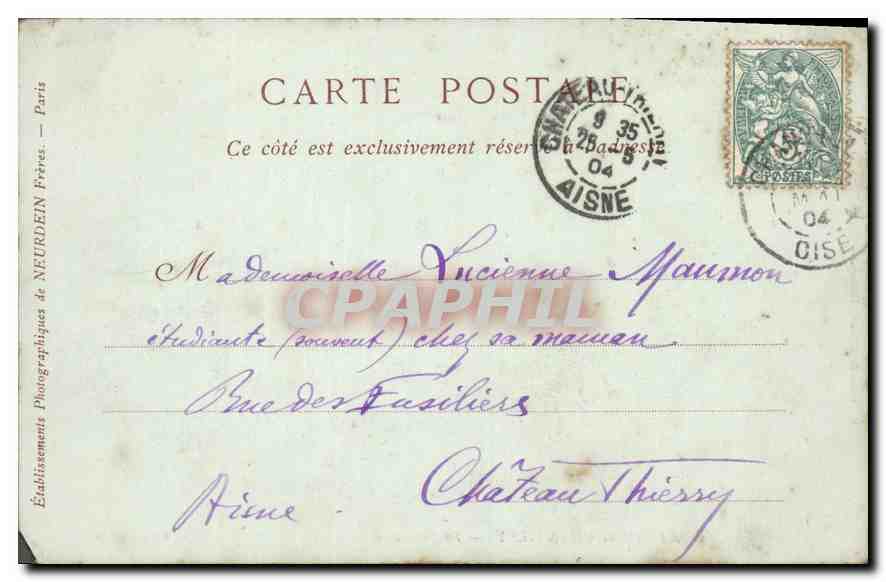 CARTE POSTALE
Ce côté est exclusivement réservé à l'adresse
CHATEAU-THIERRY
9 35
25 5
04
AISNE
POSTES
MAI
04
OISE
Mademoiselle Lucienne Maumon
étudiante (souvent) chez sa maman
Rue des Fusiliers
Château Thierry
Aisne
Établissements Photographiques de NEURDEIN Frères. — Paris
CPAPHIL